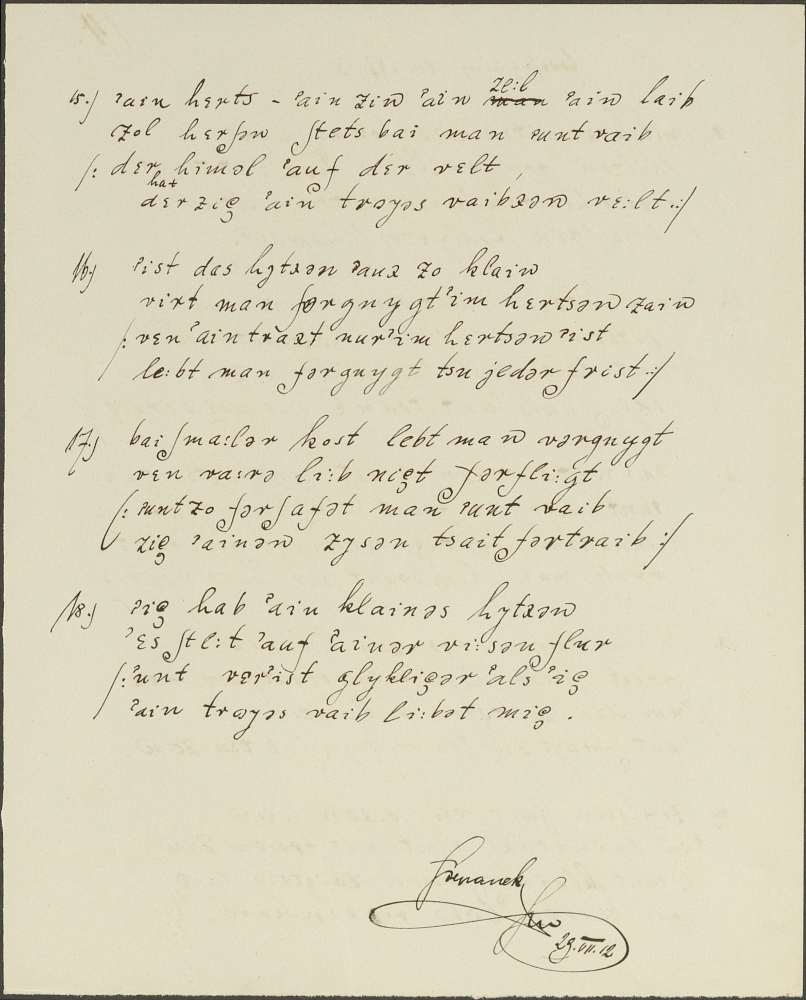 15.) ˀaɛn hɛrts - ˀain zin ˀain ze:l ˀain laib
zol hɛrʃən ʃtets bai man ˀunt vaib
/: dɛr himəl ˀauf dɛr vɛlt,
hat dɛr ziç ˀain trɔyəs vaibxən vɛ:lt :/
16.) ˀist das hytxən ˀaux zo klain
virt man fərgnygt ˀim hɛrtsən zain
/: vɛn ˀaintraxt nur ˀim hɛrtsən ˀist
le:bt man fərgnygt tsu jedər frist :/
17.) bai ʃma:lər kost lebt man vərgnygt
vɛn va:rə li:b niçt fərfli:gt
/: ˀunt zo fərʃafət man ˀunt vaib
ziç ˀainən zysən tsait fərtraib :/
18.) ˀiç hab ˀain klainəs hytxən
ˀɛs ʃte:t ˀauf ˀainər vi:sən flur
/: ˀunt ver ˀist glykliçər ˀals ˀiç
ˀain trɔyəs vaib li:bət miç.
29.VII.12